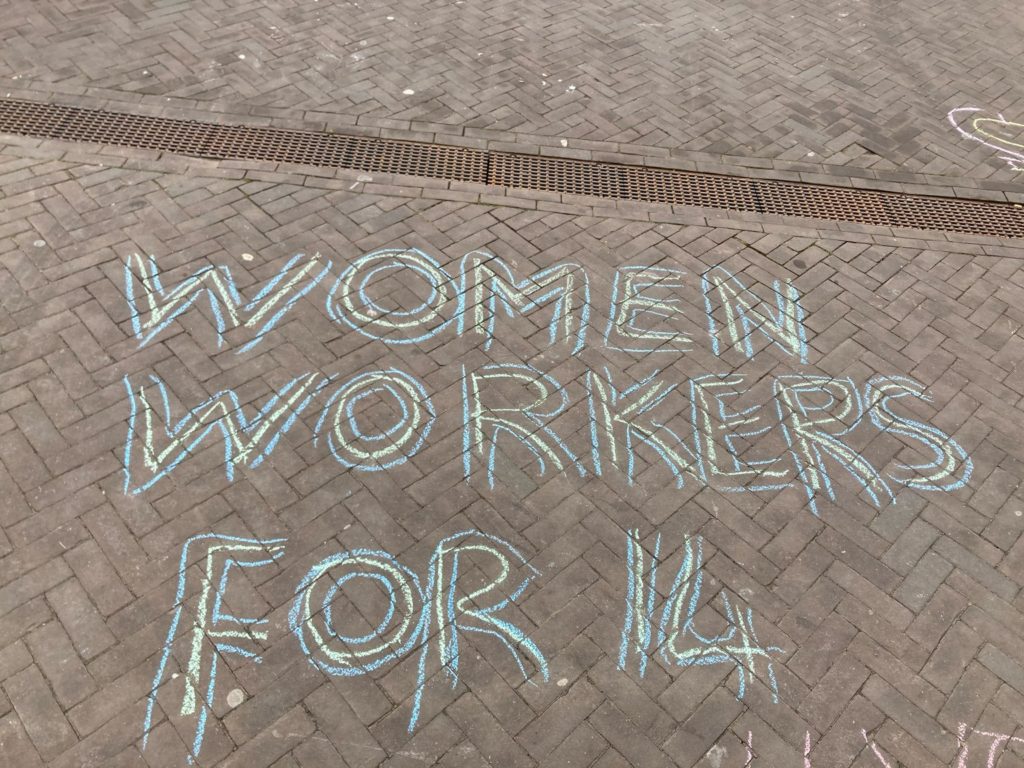 WOMEN
WORKERS
FOR 14